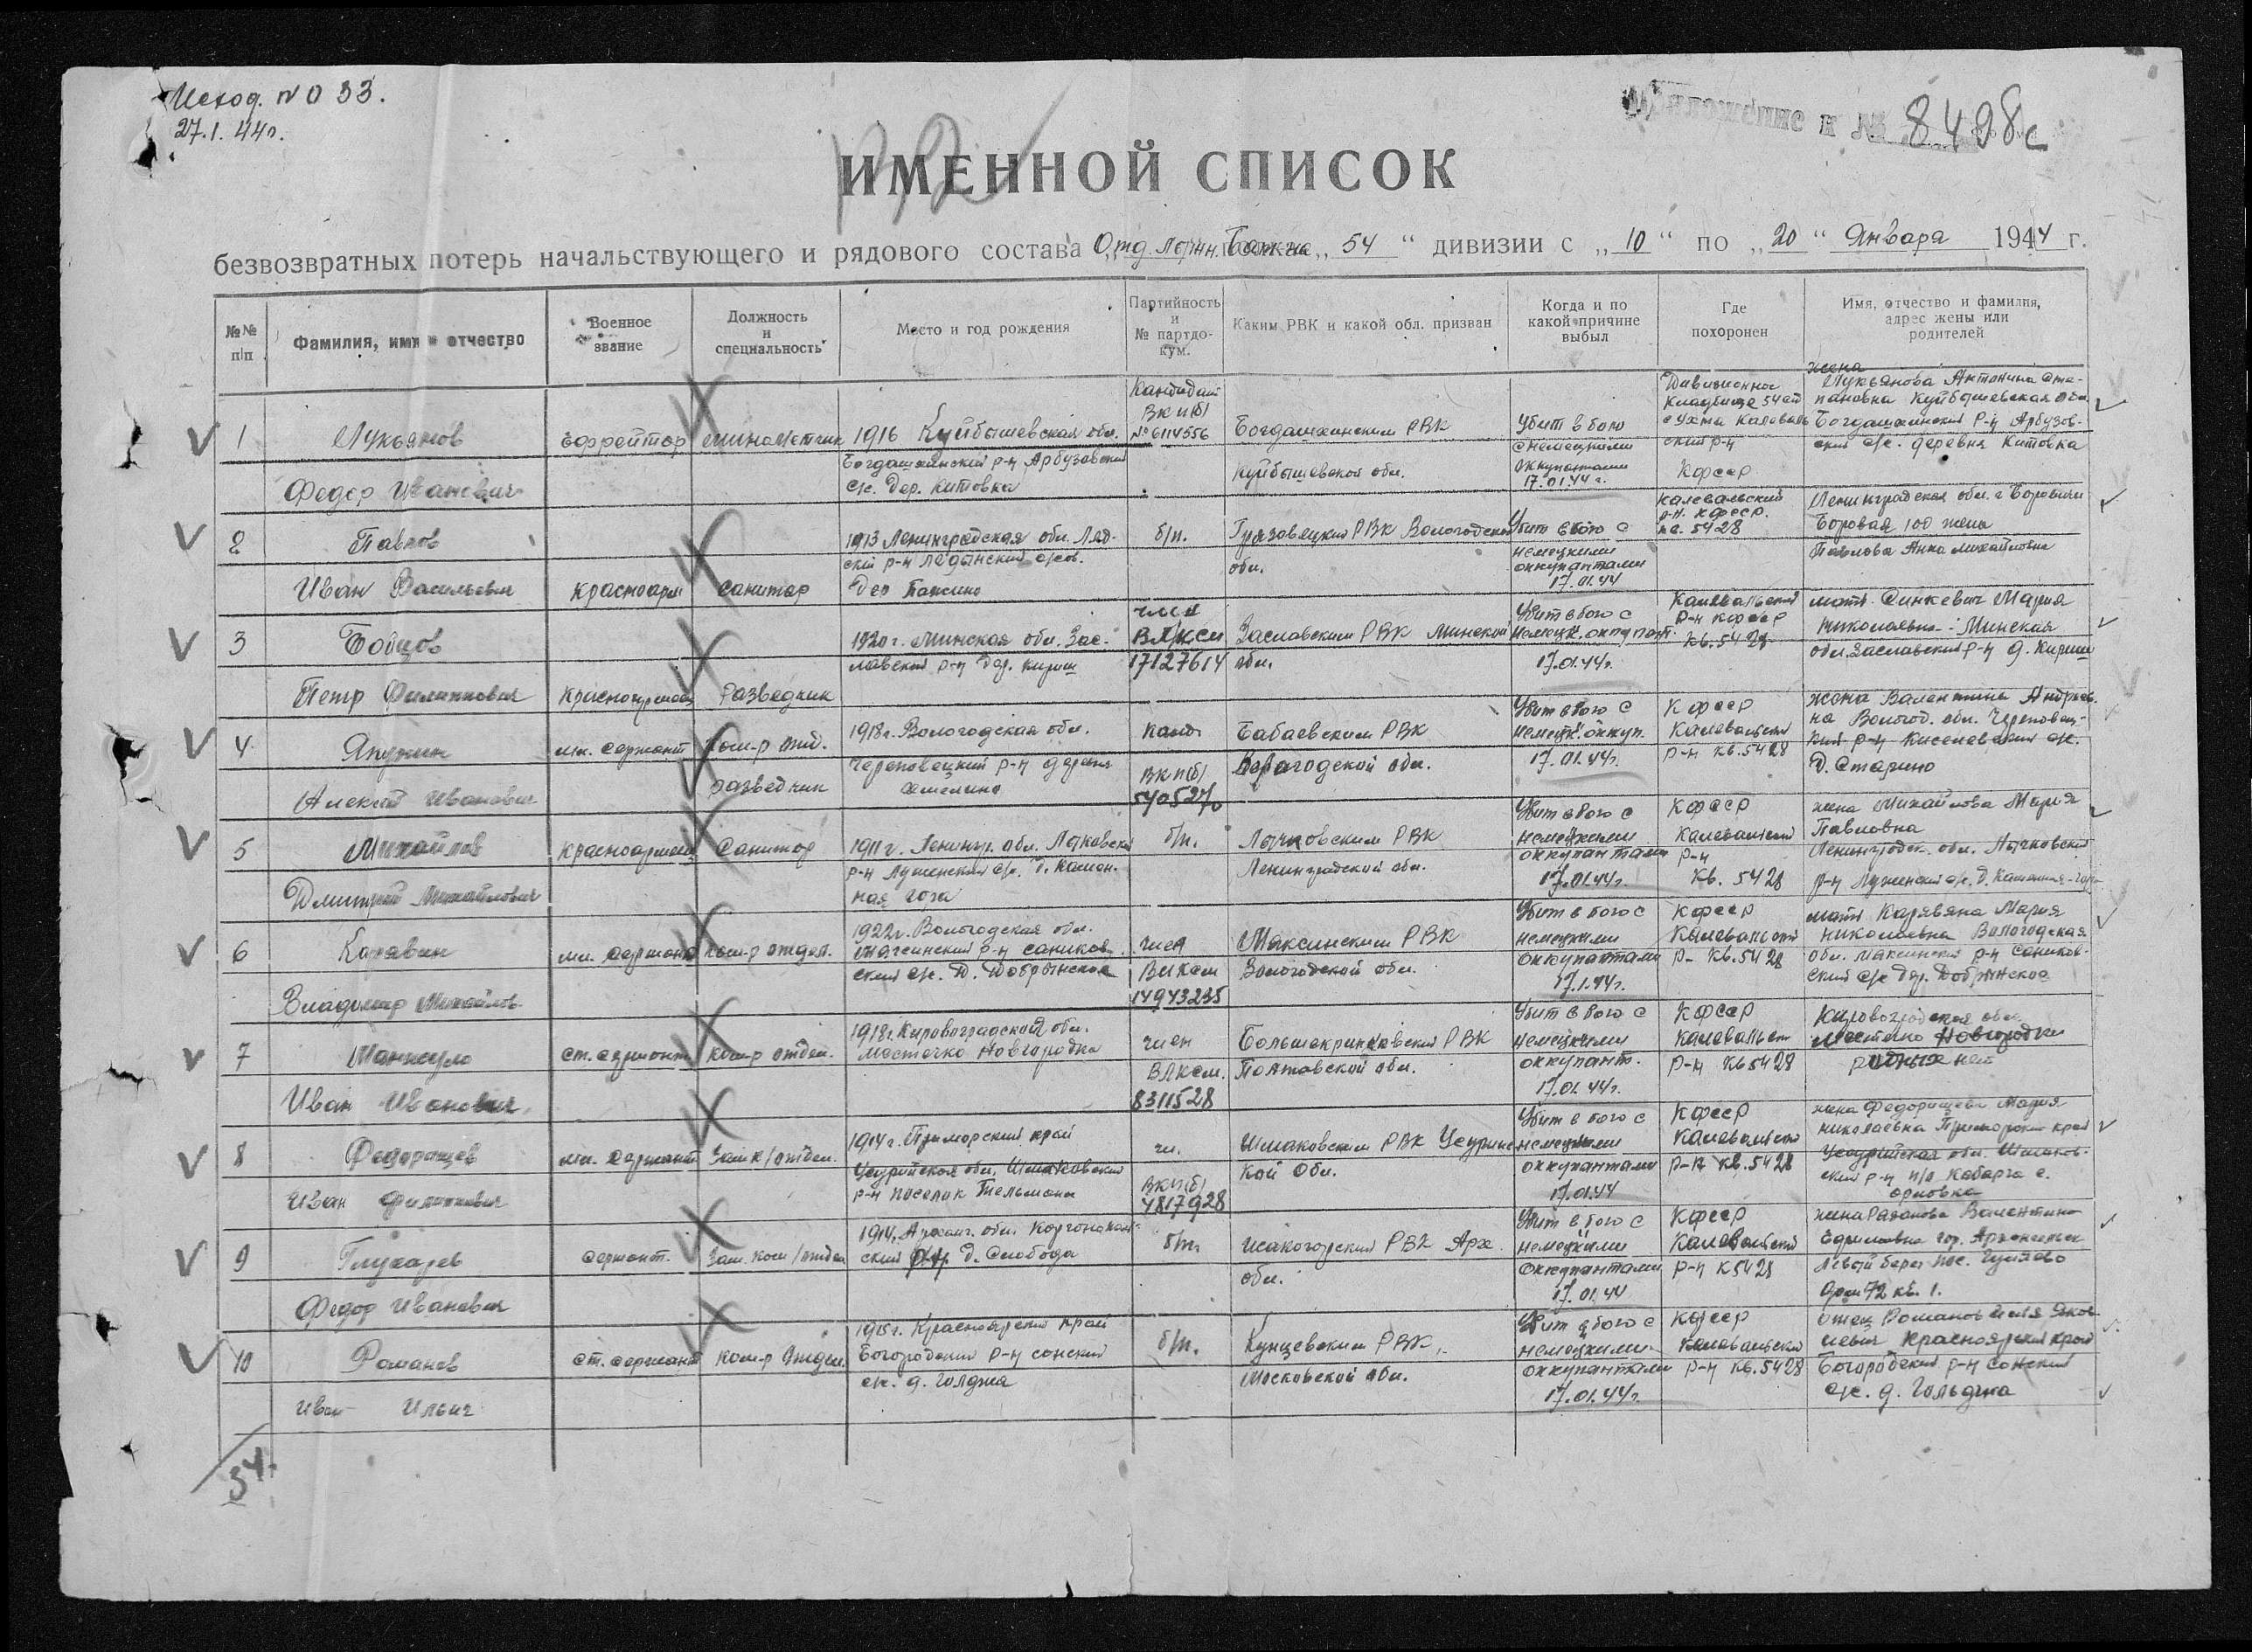 Исход. № 033.
27.1.44г.
Приложение к № 8498с
ИМЕННОЙ СПИСОК
безвозвратных потерь начальствующего и рядового состава Отд. Лыжн. Бат-на „54“ дивизии с „10“ по „20“ Января 1944 г.
№№ п/п
Фамилия, имя и отчество
Военное звание
Должность и специальность
Место и год рождения
Партийность и № партдокум.
Каким РВК и какой обл. призван
Когда и по какой причине выбыл
Где похоронен
Имя, отчество и фамилия, адрес жены или родителей
1
Лукьянов
Федор Иванович
Ефрейтор
минометчик
1916 Куйбышевская обл.
Богдашкинский р-н Арбузовский
с/с. Дер. Китовка
Кандидат
ВКП(б)
№ 6114556
Богдашкинским РВК
Куйбышевской обл.
Убит в бою
с немецкими
оккупантами
17.01.44 г.
Дивизионное
кладбище 54 сд
с Ухта Калеваль
ский р-н
Кфсср
жена
Лукьянова Антонина Сте-
пановна Куйбышевская обл.
Богдашкинский р-н Арбузов-
ский с/с. деревня Китовка
2
Павлов
Иван Васильевич
Красноарм
Санитар
1913 Ленинградская обл. Ляд-
ский р-н
Дер
б/п.
Грязовецкий РВК Вологодской
обл.
Убит в бою с
немецкими
оккупантами
17.01.44
Калевальский
р-н. Кфсср.
кв. 5428
Ленинградская обл. г Боровичи
Боровая 100 жена
Павлова Анна Михайловна
3
Бобцов
Петр Филиппович
Красноармеец
Разведчик
1920 г. Минская обл. Зас-
лавский р-н дер. Кириш
член
ВЛКСМ
17127614
Заславским РВК Минской
обл.
Убит в бою с
немецк. оккупант.
17.01.44г.
Калевальский
р-н Кфсср
Кв. 5428
мать Синкевич Мария
Николаевна Минская
обл. Заславский р-н д. Кириш
4
Алексей Иванович
мл. сержант
Ком-р отд.
разведчик
1918 г. Вологодская обл.
Череповецкий р-н деревня
канд
ВКП(б)
5405270
Бабаевским РВК
Вологодской обл.
Убит в бою с
немецк. оккуп.
17.01.44г.
Кфсср
Калевальский
р-н кв. 5428
жена Валентина Андреев
на Волгод. обл. Череповец-
кий р-н Киселевский с/с.
Д. Старино
5
Михайлов
Дмитрий Михайлович
Красноармеец
Санитар
1911 г. Ленингр. обл. Лычковский
р-н Луженский с/с. д. Камен-
ная гора
б/п.
Лычковским РВК
Ленинградской обл.
Убит в бою с
немецкими
оккупантами
17.01.44г.
Кфсср
Калевальский
р-н
Кв. 5428
жена Михайлова Мария
Павловна
Ленинградск. обл. Лычковский
р-н Луженский с/с. Д. Каменная-гора
6
Карявин
Владимир Михайлов.
мл. сержант
Ком-р отдел.
1922г. Вологодская обл.
Максинский р-н Саников-
ский с/с. Д. Добрынское
член
ВЛКСМ
14943235
Максинским РВК
Вологодской обл.
Убит в бою с
немецкими
оккупантами
17.1.44г.
Кфсср
Калевальский
р- Кв. 5428
мать Карявина Мария
Николаевна Вологодская
обл. Максинский р-н Саников-
ский с/с Дер. Добрынское
7
Манжуло
Иван Иванович
ст. сержант
Ком-р отдел.
1918 г. Кировоградской обл.
Местечко Новгородка
член
ВЛКСМ.
8311528
Большекринковский РВК
Полтавской обл.
Убит в бою с
немецкими
оккупант.
17.01.44г.
Кфсср
Калевальск
р-н Кв 5428
Кировоградская обл.
местечко Новгородки
родных нет
8
Федоращев
Иван Филиппович
мл. сержант
Зам к/отдел.
1914 г. Приморский край
Усурийская обл. Шмаковский
р-н поселок Тельмана
чл.
ВКП(б)
4817928
Шмаковским РВК Усурийс
кой Обл.
Убит в бою с
немецкими
оккупантами
17.01.44
Кфсср
Калевальский
р-н кв. 5428
жена Федоращева Мария
Николаевна Приморский край
Усурийская обл. Шмаков-
ский р-н п/о Кабарга с.
Орловка
9
Глухарев
Федор Иванович
Сержант.
Зам. ком/отдел
1914. Арханг. обл. Каргополь-
ский р-н д. Слобода
б/п.
Исакогорский РВК Арх.
обл.
Убит в бою с
немецкими
оккупантами
17.01.44
Кфсср
Калевальский
р-н К 5428
жена Разанова Валентина
Ефимовна гор. Архангельск
Левый берег пос.
дом 72 кв. 1.
10
Романов
Иван Ильич
ст. сержант
Ком-р отдел.
1915 г. Красноярский край
Боготольский р-н Сонский
с/с. д. Голджа
б/п.
Кунцевским РВК.
Московской обл.
Убит в бою с
немецкими
оккупантами
17.01.44г.
Кфсср
Калевальский
р-н Кв. 5428
отец Романов Илья Яков
левич Красноярский край
Боготольский р-н Сонский
с/с. д. Гольджа
54.